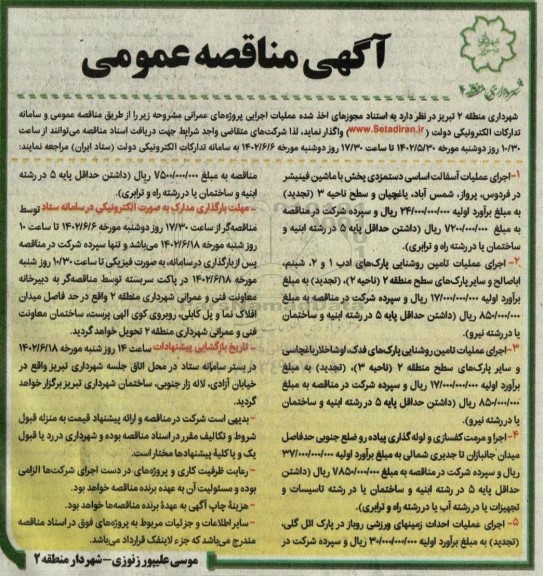 آگهی مناقصه عمومی
شهرداری منطقه ۲
شهرداری منطقه ۲ تبریز در نظر دارد به استناد مجوزهای اخذ شده عملیات اجرایی پروژه‌های عمرانی مشروحه زیر را از طریق مناقصه عمومی و سامانه
تدارکات الکترونیکی دولت (www.Setadiran.ir) واگذار نماید، لذا شرکت‌های متقاضی واجد شرایط جهت دریافت اسناد مناقصه می‌توانند از ساعت
۱۰/۳۰ روز دوشنبه مورخه ۱۴۰۲/۵/۳۰ تا ساعت ۱۷/۳۰ روز دوشنبه مورخه ۱۴۰۲/۶/۶ به سامانه تدارکات الکترونیکی دولت (ستاد ایران) مراجعه نمایند:
۱-اجرای عملیات آسفالت اساسی دستمزدی پخش با ماشین فینیشر
در فردوس، پرواز، شمس آباد، یاغچیان و سطح ناحیه ۳ (تجدید)
به مبلغ برآورد اولیه ۲۴/۰۰۰/۰۰۰/۰۰۰ ریال و سپرده شرکت در مناقصه
به مبلغ ۷/۲۰۰/۰۰۰/۰۰۰ ریال (داشتن حداقل پایه ۵ در رشته ابنیه و
ساختمان یا در رشته راه و ترابری).
۲- اجرای عملیات تامین روشنایی پارک‌های ادب ۱ و ۲، شبنم،
اباصالح و سایر پارک‌های سطح منطقه ۲ (ناحیه ۲)، (تجدید) به مبلغ
برآورد اولیه ۱۷/۰۰۰/۰۰۰/۰۰۰ ریال و سپرده شرکت در مناقصه به مبلغ
۸۵۰/۰۰۰/۰۰۰ ریال (داشتن حداقل پایه ۵ در رشته ابنیه و ساختمان
یا در رشته نیرو).
۳-اجرای عملیات تامین روشنایی پارک‌های فدک، اوشاخلار باغچاسی
و سایر پارک‌های سطح منطقه ۲ (ناحیه ۳)، (تجدید) به مبلغ
برآورد اولیه ۱۷/۰۰۰/۰۰۰/۰۰۰ ریال و سپرده شرکت در مناقصه به مبلغ
۸۵۰/۰۰۰/۰۰۰ ریال (داشتن حداقل پایه ۵ در رشته ابنیه و ساختمان
یا در رشته نیرو).
۴- اجرا و مرمت کفسازی و لوله گذاری پیاده رو ضلع جنوبی حدفاصل
میدان جانبازان تا جدیری شمالی به مبلغ برآورد اولیه ۳۷/۰۰۰/۰۰۰/۰۰۰
ریال و سپرده شرکت در مناقصه به مبلغ ۱/۸۵۰/۰۰۰/۰۰۰ ریال (داشتن
حداقل پایه ۵ در رشته ابنیه و ساختمان یا در رشته تاسیسات و
تجهیزات یا در رشته آب یا در رشته راه و ترابری).
۵- اجرای عملیات احداث زمینهای ورزشی روباز در پارک ائل گلی،
(تجدید) به مبلغ برآورد اولیه ۳۰/۰۰۰/۰۰۰/۰۰۰ ریال و سپرده شرکت در
مناقصه به مبلغ ۱/۵۰۰/۰۰۰/۰۰۰ ریال (داشتن حداقل پایه ۵ در رشته
ابنیه و ساختمان یا در رشته راه و ترابری).
- مهلت بارگذاری مدارک به صورت الکترونیکی در سامانه ستاد توسط
مناقصه‌گر از ساعت ۱۷/۳۰ روز دوشنبه مورخه ۱۴۰۲/۶/۶ تا ساعت ۱۰
روز شنبه مورخه ۱۴۰۲/۶/۱۸ می‌باشد و تنها سپرده شرکت در مناقصه
پس از بارگذاری در سامانه، به صورت فیزیکی تا ساعت ۱۰/۳۰ روز شنبه
مورخه ۱۴۰۲/۶/۱۸ در پاکت سربسته توسط مناقصه‌گر به دبیرخانه
معاونت فنی و عمرانی شهرداری منطقه ۲ واقع در حد فاصل میدان
افلاک نما و پل کابلی، روبروی کوی الهی پرست، ساختمان معاونت
فنی و عمرانی شهرداری منطقه ۲ تحویل خواهد گردید.
- تاریخ بازگشایی پیشنهادات ساعت ۱۴ روز شنبه مورخه ۱۴۰۲/۶/۱۸
در بستر سامانه ستاد در محل اتاق جلسه شهرداری تبریز واقع در
خیابان آزادی، لاله زار جنوبی، ساختمان شهرداری تبریز برگزار خواهد
گردید.
- بدیهی است شرکت در مناقصه و ارائه پیشنهاد قیمت به منزله قبول
شروط و تکالیف مقرر در اسناد مناقصه بوده و شهرداری در رد یا قبول
یک و یا کلیهٔ پیشنهادها مختار است.
- رعایت ظرفیت کاری و پروژه‌های در دست اجرای شرکت‌ها الزامی
بوده و مسئولیت آن به عهده برنده مناقصه خواهد بود.
- هزینهٔ چاپ آگهی به عهدهٔ برنده مناقصه‌ها خواهد بود.
- سایر اطلاعات و جزئیات مربوط به پروژه‌های فوق در اسناد مناقصه
مندرج می‌باشد که جزء لاینفک قرارداد می‌باشد.
موسی علیپور زنوزی-شهردار منطقه ۲